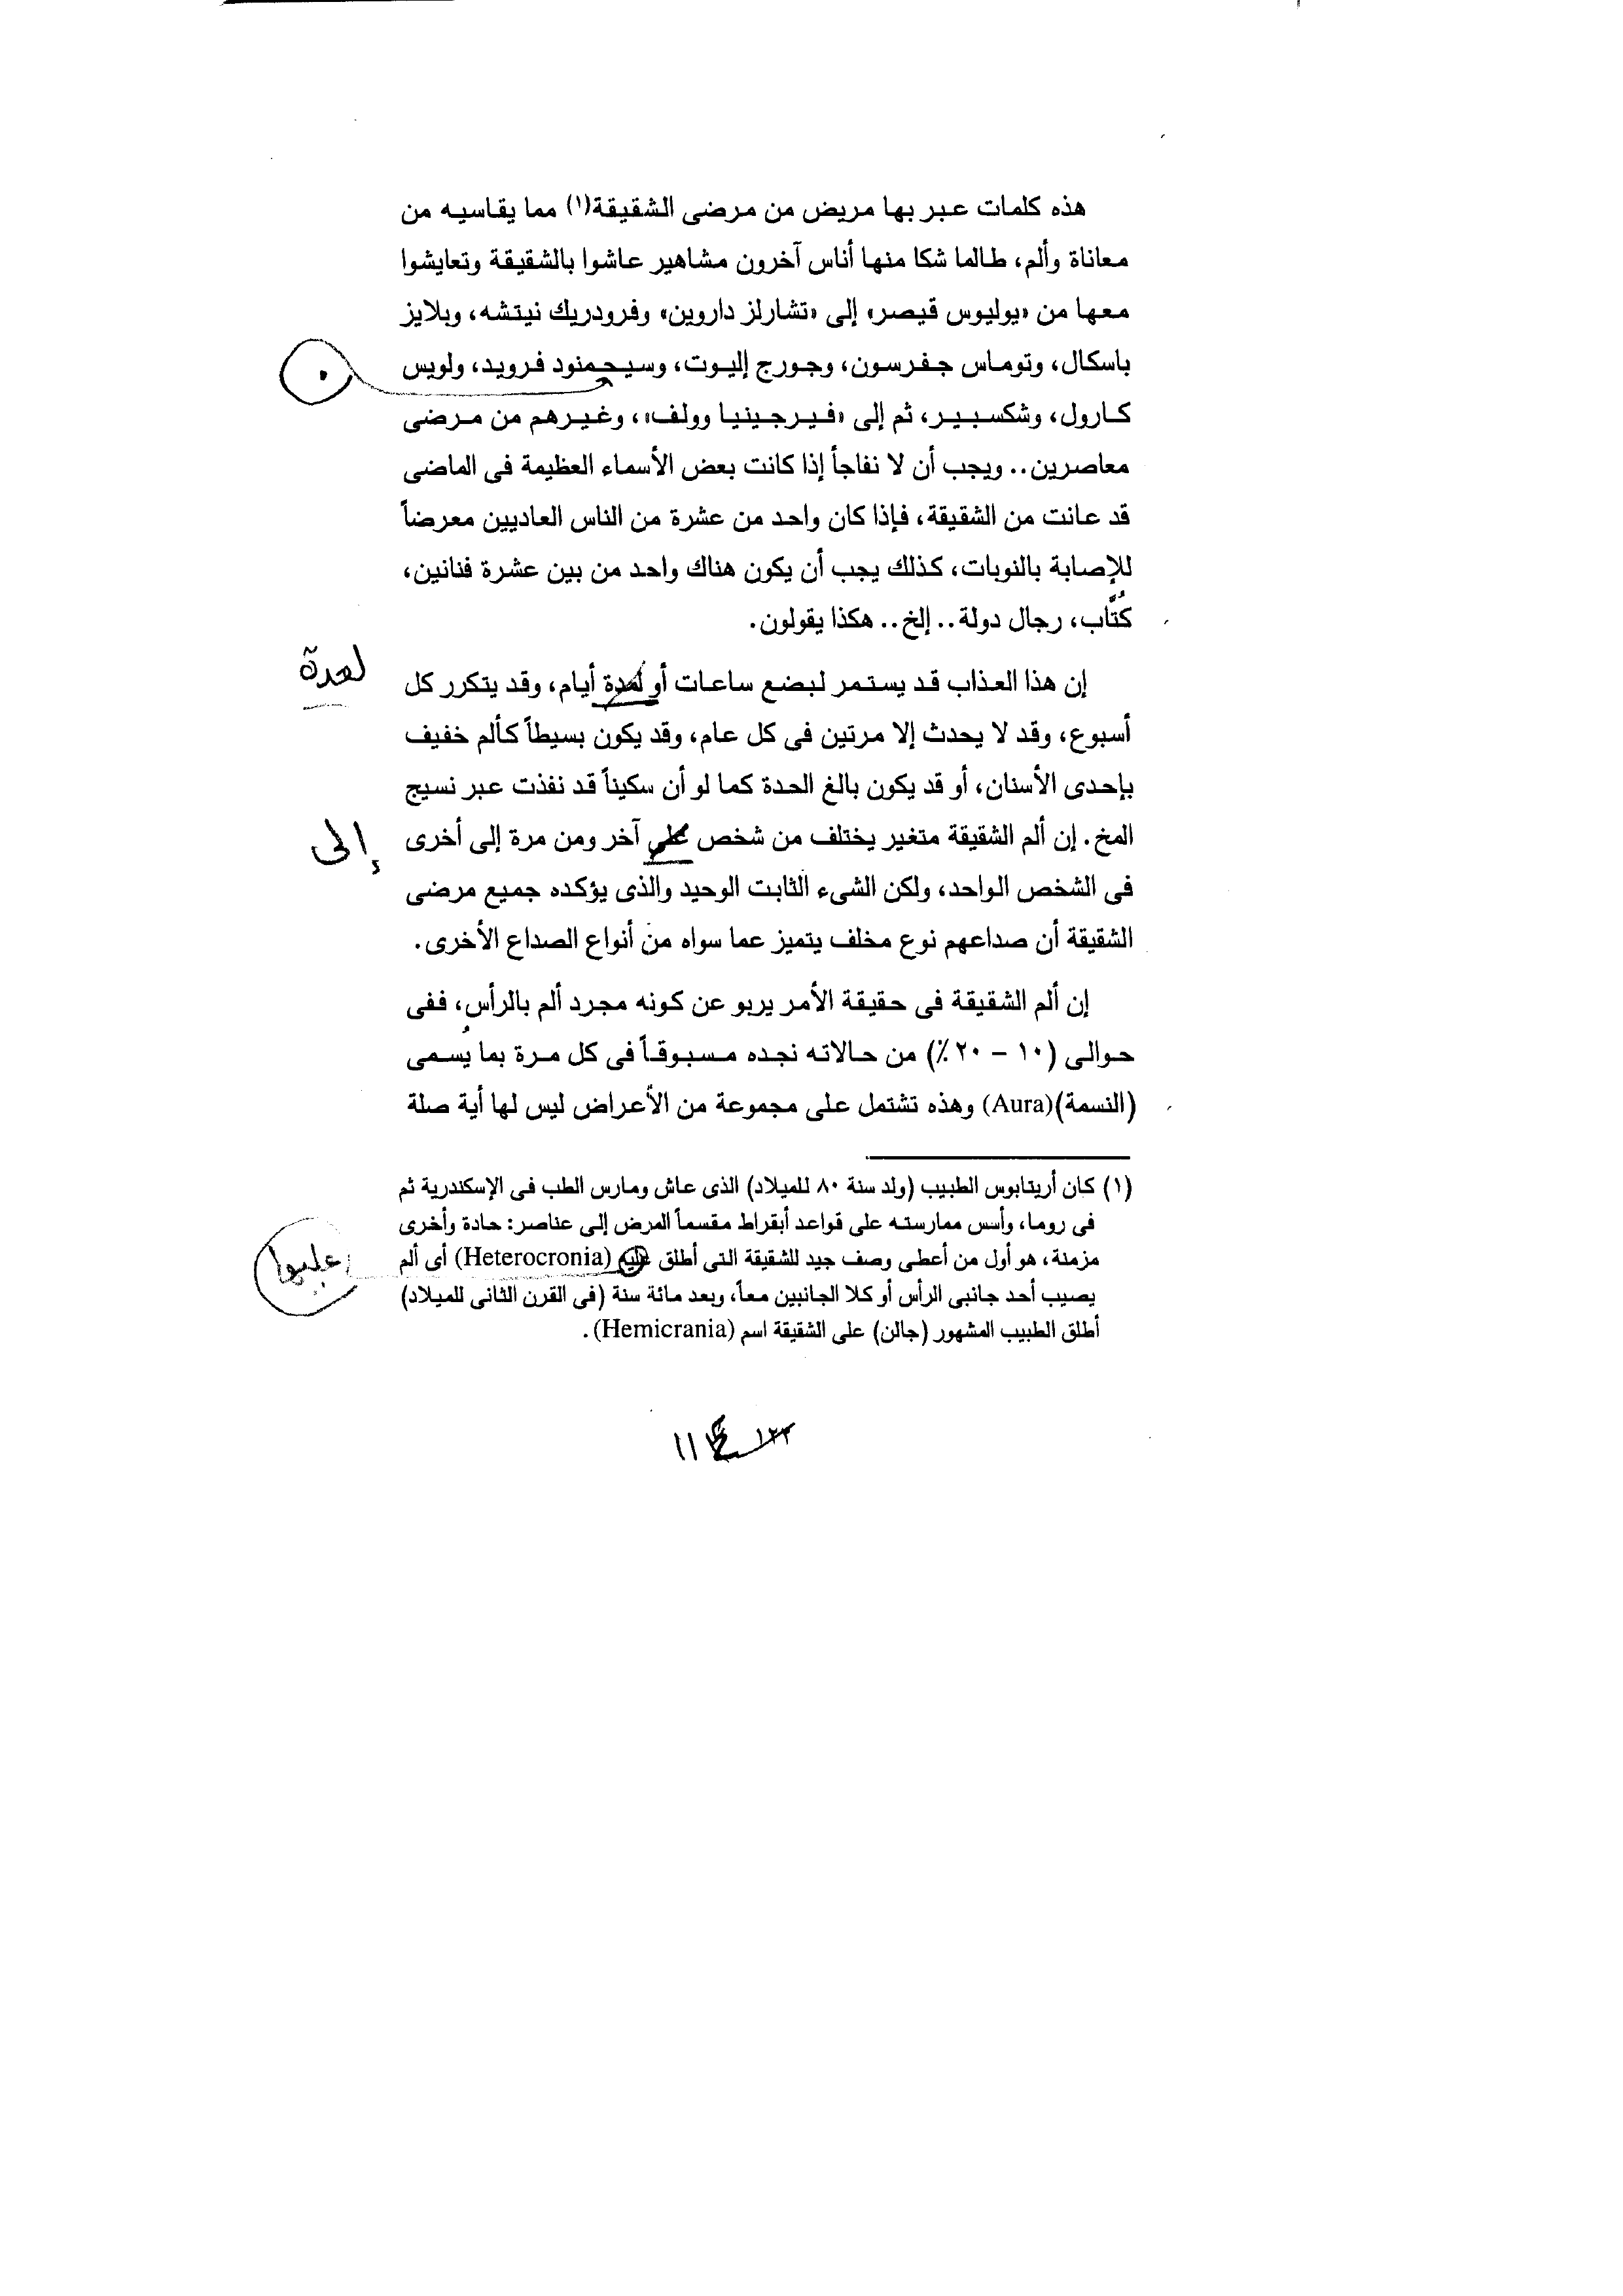 هذه كلمات عبر بها مريض من مرضى الشقيقة(١) مما يقاسيه من
معاناة وألم، طالما شكا منها أناس آخرون مشاهير عاشوا بالشقيقة وتعايشوا
معها من «يوليوس قيصر» إلى «تشارلز داروين» وفرودريك نيتشه، وبلايز
باسكال، وتوماس جفرسون، وجورج إليوت، وسيجمنود فرويد، ولويس
كارول، وشكسبير، ثم إلى «فيرجينيا وولف»، وغيرهم من مرضى
معاصرين.. ويجب أن لا نفاجأ إذا كانت بعض الأسماء العظيمة فى الماضى
قد عانت من الشقيقة، فإذا كان واحد من عشرة من الناس العاديين معرضاً
للإصابة بالنوبات، كذلك يجب أن يكون هناك واحد من بين عشرة فنانين،
كُتَّاب، رجال دولة.. إلخ.. هكذا يقولون.
لعدة
إن هذا العذاب قد يستمر لبضع ساعات أو لمدة أيام، وقد يتكرر كل
أسبوع، وقد لا يحدث إلا مرتين فى كل عام، وقد يكون بسيطاً كألم خفيف
بإحدى الأسنان، أو قد يكون بالغ الحدة كما لو أن سكيناً قد نفذت عبر نسيج
المخ. إن ألم الشقيقة متغير يختلف من شخص على آخر ومن مرة إلى أخرى
إلى
فى الشخص الواحد، ولكن الشىء الثابت الوحيد والذى يؤكده جميع مرضى
الشقيقة أن صداعهم نوع مخلف يتميز عما سواه من أنواع الصداع الأخرى.
إن ألم الشقيقة فى حقيقة الأمر يربو عن كونه مجرد ألم بالرأس، ففى
حوالى (١٠ – ٢٠٪) من حالاته نجده مسبوقاً فى كل مرة بما يُسمى
(النسمة)(Aura) وهذه تشتمل على مجموعة من الأعراض ليس لها أية صلة
(١) كان أريتايوس الطبيب (ولد سنة ٨٠ للميلاد) الذى عاش ومارس الطب فى الإسكندرية ثم
فى روما، وأسس ممارسته على قواعد أبقراط مقسماً المرض إلى عناصر: حادة وأخرى
مزمنة، هو أول من أعطى وصف جيد للشقيقة التى أطلق عليه (Heterocronia) أى ألم
عليها
يصيب أحد جانبى الرأس أو كلا الجانبين معاً، وبعد مائة سنة (فى القرن الثانى للميلاد)
أطلق الطبيب المشهور (جالن) على الشقيقة اسم (Hemicrania).
١١